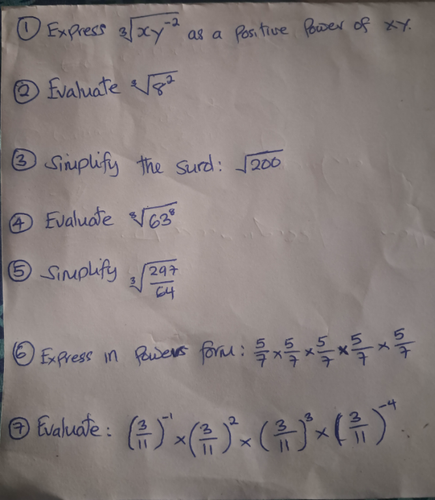 ① Express ∛(xy⁻²) as a positive power of xy.
② Evaluate ∛(8²)
③ Simplify the surd: √200
④ Evaluate ⁸√(63⁸)
⑤ Simplify ∛(297/64)
⑥ Express in Powers form: 5/7 × 5/7 × 5/7 × 5/7 × 5/7
⑦ Evaluate: (3/11)⁻¹ × (3/11)² × (3/11)³ × (3/11)⁻⁴